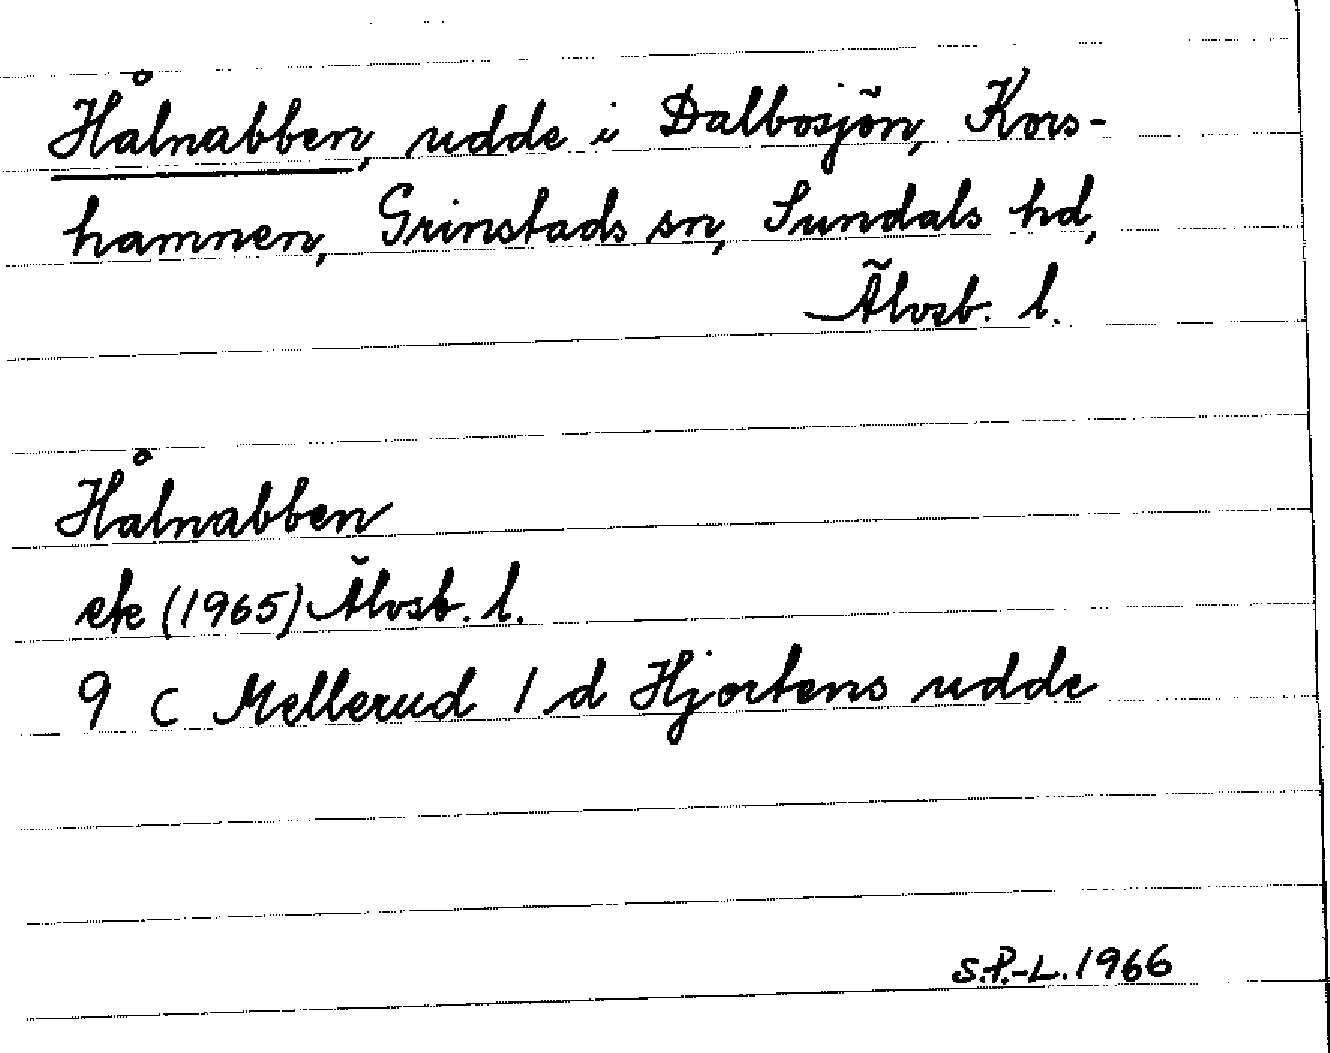 Hålnabben, udde i Dalbosjön, Kors-
hamnen, Grinstads sn, Sundals hd,
Älvsb. l.
Hålnabben
ek (1965) Älvsb. l.
9 C Mellerud 1 d Hjortens udde
S.P.-L. 1966